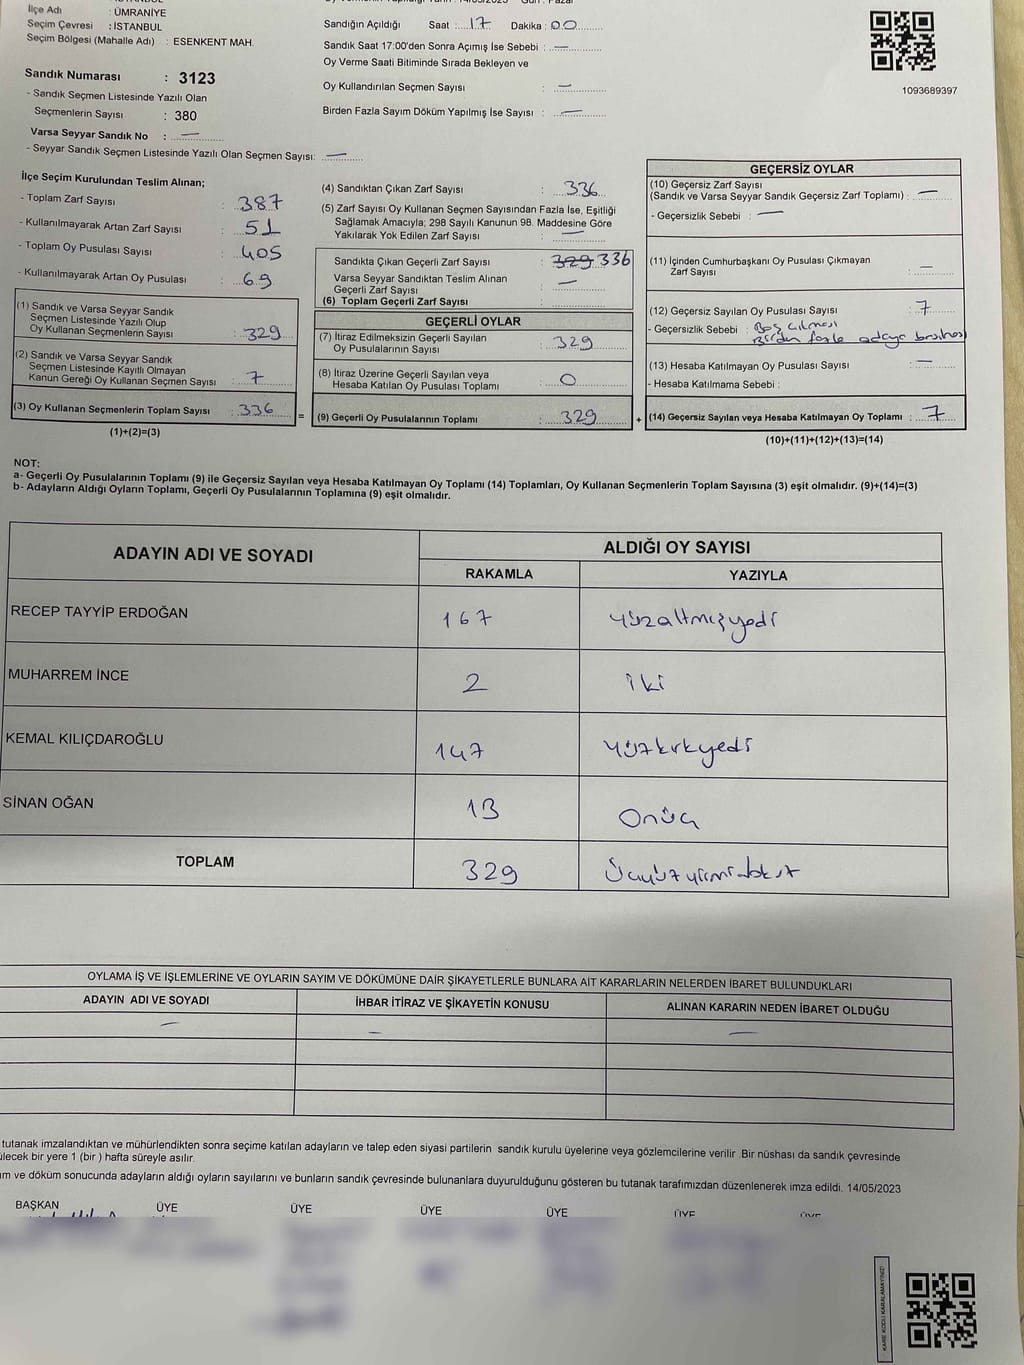 İlçe Adı : ÜMRANİYE
Seçim Çevresi : İSTANBUL
Seçim Bölgesi (Mahalle Adı) : ESENKENT MAH.
Sandık Numarası : 3123
- Sandık Seçmen Listesinde Yazılı Olan
Seçmenlerin Sayısı : 380
Varsa Seyyar Sandık No : —
- Seyyar Sandık Seçmen Listesinde Yazılı Olan Seçmen Sayısı: —
Sandığın Açıldığı Saat : 17 Dakika : 00
Sandık Saat 17:00'den Sonra Açımış İse Sebebi : —
Oy Verme Saati Bitiminde Sırada Bekleyen ve
Oy Kullandırılan Seçmen Sayısı : —
Birden Fazla Sayım Döküm Yapılmış İse Sayısı : —
1093689397
İlçe Seçim Kurulundan Teslim Alınan;
- Toplam Zarf Sayısı : 387
- Kullanılmayarak Artan Zarf Sayısı : 51
- Toplam Oy Pusulası Sayısı : 405
- Kullanılmayarak Artan Oy Pusulası : 69
(1) Sandık ve Varsa Seyyar Sandık
Seçmen Listesinde Yazılı Olup
Oy Kullanan Seçmenlerin Sayısı : 329
(2) Sandık ve Varsa Seyyar Sandık
Seçmen Listesinde Kayıtlı Olmayan
Kanun Gereği Oy Kullanan Seçmen Sayısı : 7
(3) Oy Kullanan Seçmenlerin Toplam Sayısı : 336
(1)+(2)=(3)
=
(4) Sandıktan Çıkan Zarf Sayısı : 336
(5) Zarf Sayısı Oy Kullanan Seçmen Sayısından Fazla İse, Eşitliği
Sağlamak Amacıyla; 298 Sayılı Kanunun 98. Maddesine Göre
Yakılarak Yok Edilen Zarf Sayısı : —
Sandıkta Çıkan Geçerli Zarf Sayısı : 329 336
Varsa Seyyar Sandıktan Teslim Alınan
Geçerli Zarf Sayısı : —
(6) Toplam Geçerli Zarf Sayısı :
GEÇERLİ OYLAR
(7) İtiraz Edilmeksizin Geçerli Sayılan
Oy Pusulalarının Sayısı : 329
(8) İtiraz Üzerine Geçerli Sayılan veya
Hesaba Katılan Oy Pusulası Toplamı : 0
(9) Geçerli Oy Pusulalarının Toplamı : 329
+
GEÇERSİZ OYLAR
(10) Geçersiz Zarf Sayısı
(Sandık ve Varsa Seyyar Sandık Geçersiz Zarf Toplamı) : —
- Geçersizlik Sebebi : —
(11) İçinden Cumhurbaşkanı Oy Pusulası Çıkmayan
Zarf Sayısı : —
(12) Geçersiz Sayılan Oy Pusulası Sayısı : 7
- Geçersizlik Sebebi : Boş çıkması
Birden fazla adaya
(13) Hesaba Katılmayan Oy Pusulası Sayısı : —
- Hesaba Katılmama Sebebi :
(14) Geçersiz Sayılan veya Hesaba Katılmayan Oy Toplamı : 7
(10)+(11)+(12)+(13)=(14)
NOT:
a- Geçerli Oy Pusulalarının Toplamı (9) ile Geçersiz Sayılan veya Hesaba Katılmayan Oy Toplamı (14) Toplamları, Oy Kullanan Seçmenlerin Toplam Sayısına (3) eşit olmalıdır. (9)+(14)=(3)
b- Adayların Aldığı Oyların Toplamı, Geçerli Oy Pusulalarının Toplamına (9) eşit olmalıdır.
ADAYIN ADI VE SOYADI ALDIĞI OY SAYISI
RAKAMLA YAZIYLA
RECEP TAYYİP ERDOĞAN 167 yüzaltmışyedi
MUHARREM İNCE 2 iki
KEMAL KILIÇDAROĞLU 147 yüzkırkyedi
SİNAN OĞAN 13 onüç
TOPLAM 329 Üçyüzyirmidokuz
OYLAMA İŞ VE İŞLEMLERİNE VE OYLARIN SAYIM VE DÖKÜMÜNE DAİR ŞİKAYETLERLE BUNLARA AİT KARARLARIN NELERDEN İBARET BULUNDUKLARI
ADAYIN ADI VE SOYADI İHBAR İTİRAZ VE ŞİKAYETİN KONUSU ALINAN KARARIN NEDEN İBARET OLDUĞU
— — —
tutanak imzalandıktan ve mühürlendikten sonra seçime katılan adayların ve talep eden siyasi partilerin sandık kurulu üyelerine veya gözlemcilerine verilir .Bir nüshası da sandık çevresinde
bir yere 1 (bir ) hafta süreyle asılır.
ve döküm sonucunda adayların aldığı oyların sayılarını ve bunların sandık çevresinde bulunanlara duyurulduğunu gösteren bu tutanak tarafımızdan düzenlenerek imza edildi. 14/05/2023
BAŞKAN ÜYE ÜYE ÜYE ÜYE ÜYE
KARE KODU KARALAMAYINIZ!